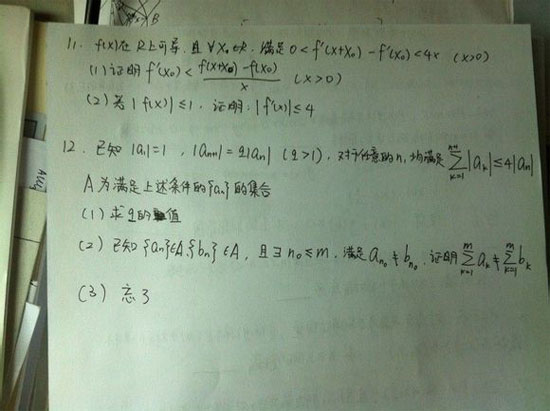 B
11. f(x)在R上可导,且∀x₀∈R,满足 0<f'(x+x₀)-f'(x₀)<4x (x>0)
(1)证明 f'(x₀)<\frac{f(x+x₀)-f(x₀)}{x} (x>0)
(2)若|f(x)|≤1,证明:|f'(x)|≤4
12. 已知|a₁|=1,|aₙ₊₁|=q|aₙ| (q>1),对于任意的n,均满足\sum_{k=1}^{n+1}|a_k|≤4|aₙ|
A为满足上述条件的{aₙ}的集合
(1)求q的值
(2)已知{aₙ}∈A,{bₙ}∈A,且∃n₀≤m,满足a_{n₀}≠b_{n₀},证明\sum_{k=1}^{m}a_k≠\sum_{k=1}^{m}b_k
(3)忘了